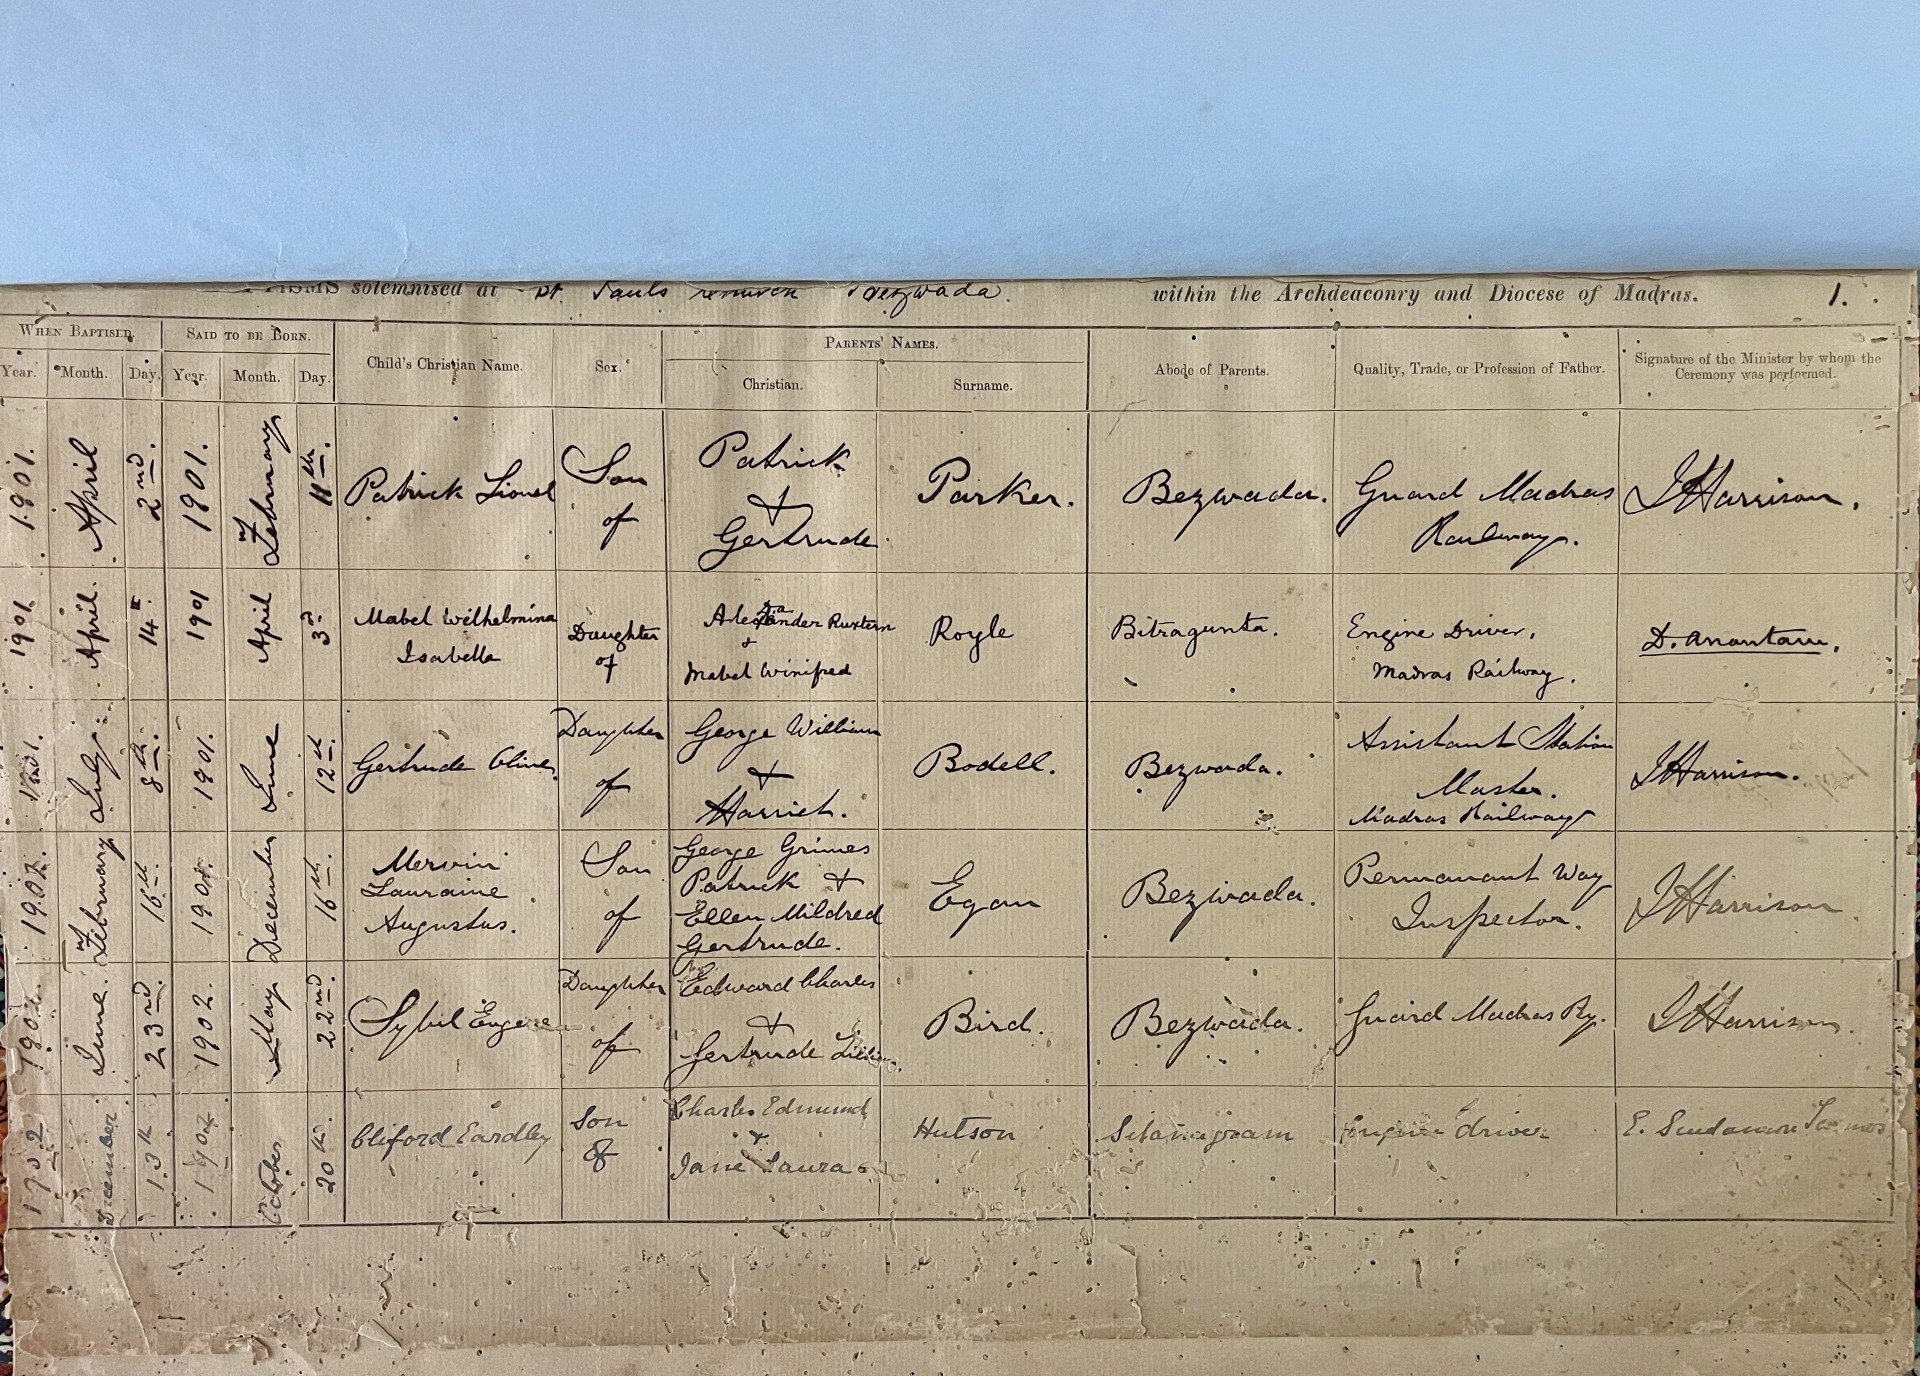 solemnised at St. Pauls Bezwada. within the Archdeaconry and Diocese of Madras. 1.
WHEN BAPTISED. SAID TO BE BORN. Child's Christian Name. Sex. PARENTS' NAMES. Abode of Parents. Quality, Trade, or Profession of Father. Signature of the Minister by whom the
Ceremony was performed.
Year. Month. Day. Year. Month. Day. Christian. Surname.
1901. April 2nd. 1901. February 11th. Patrick Lionel Son
of Patrick
&
Gertrude Parker. Bezwada. Guard Madras
Railway. J Harrison.
1901. April. 14th. 1901 April 3rd Mabel Wilhelmina
Isabella Daughter
of
&
Mabel Winifred Royle Bitragunta. Engine Driver,
Madras Railway. D. Anantam.
July 8th. 1901. June 12th. Gertrude Daughter
of George William
&
Harriet. Bodell. Bezwada. Assistant Station
Master.
Madras Railway J Harrison.
1902. February 16th. 1901. December 16th. Mervin
Lauraine
Augustus. Son
of George Grimes
Patrick &
Ellen Mildred
Gertrude. Egan Bezwada. Permanant Way
Inspector. J Harrison.
1902. June. 23rd. 1902. May 22nd. Sybil Eugene Daughter
of Edward Charles
&
Gertrude Bird. Bezwada. Guard Madras Ry. J Harrison.
1902 December 13th 1902 October 20th. Cliford Eardley Son
of Charles Edmund
&
Jane Laura Hutson Sitanagram Engine driver E.